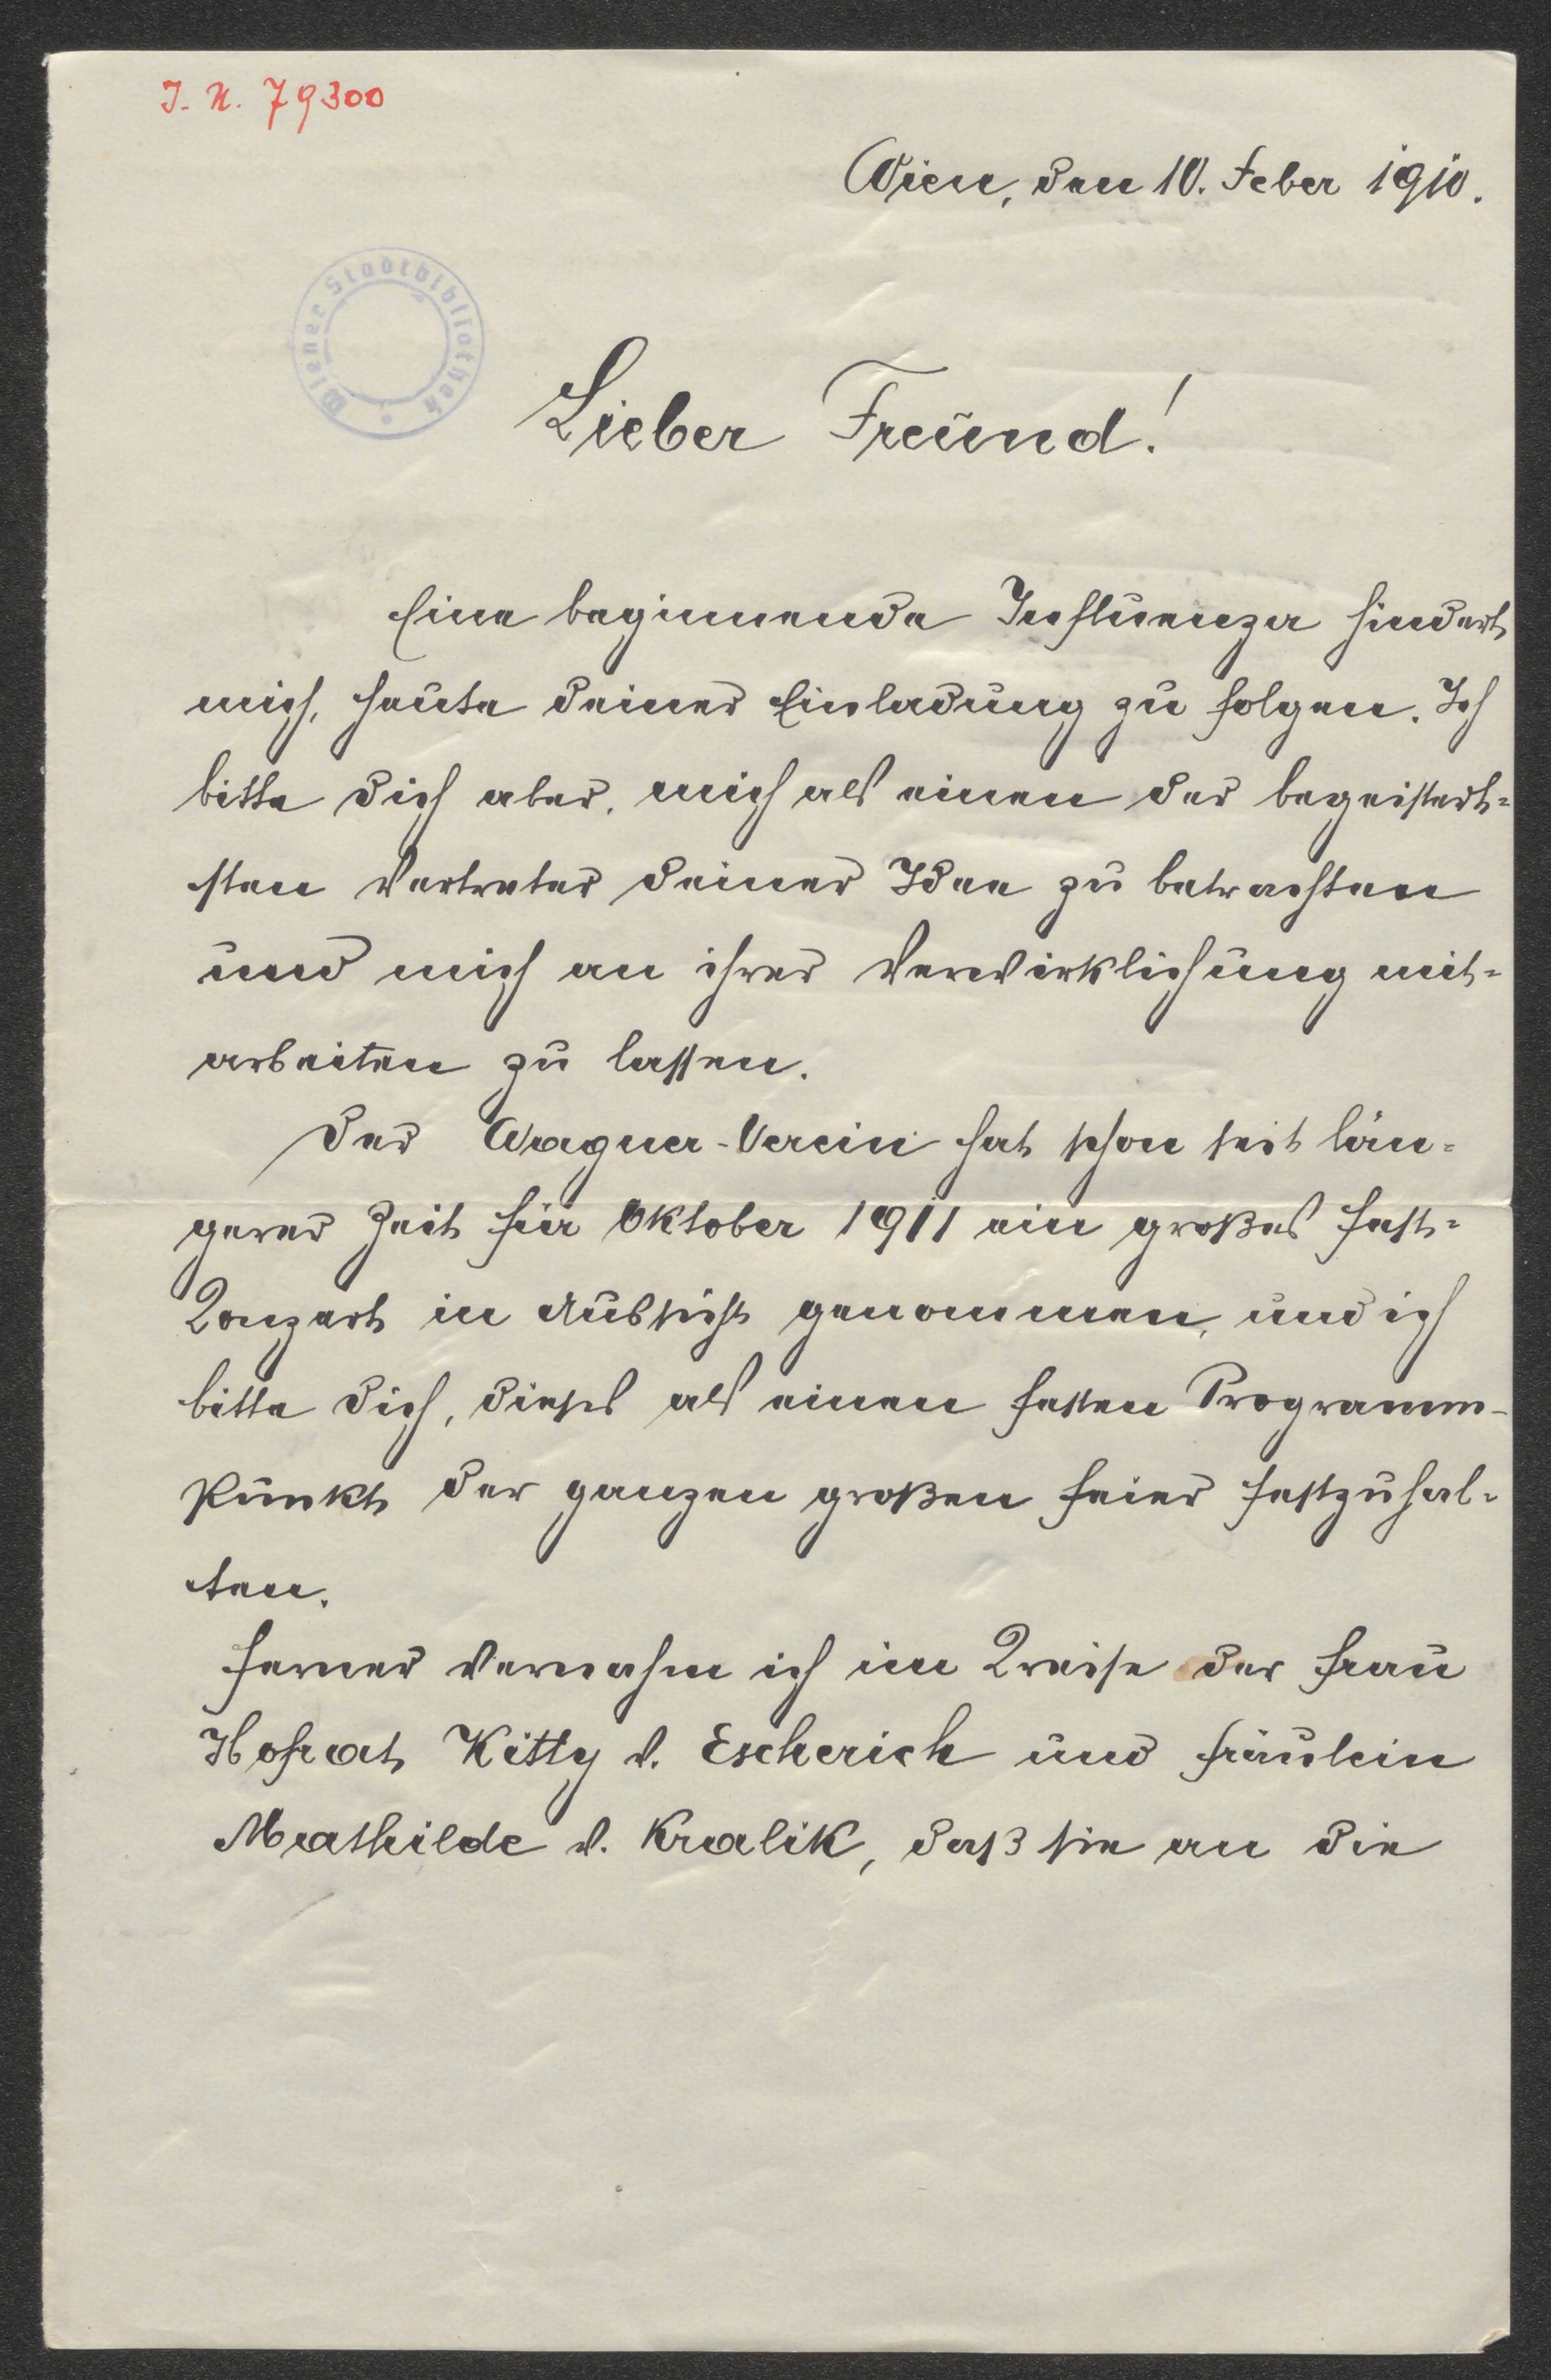 J. N. 79300
Wien, den 10. Feber 1910.
Wiener Stadtbibliothek
Lieber Freund!
Eine beginnende Influenza hindert
mich, heute deiner Einladung zu folgen. Ich
bitte dich aber, mich als einen der begeistert=
sten Vertreter deiner Idee zu betrachten
und mich an ihrer Verwirklichung mit=
arbeiten zu lassen.
Der Wagner-Verein hat schon seit län=
gerer Zeit für Oktober 1911 ein großes Fest=
Konzert in Aussicht genommen, und ich
bitte dich, dieses als einen festen Programm-
punkt der ganzen großen Feier festzuhal=
ten.
Ferner vernahm ich im Kreise der Frau
Hofrat Kitty v. Escherich und Fräulein
Mathilde v. Kralik, daß sie an die